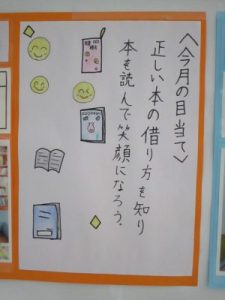 ＜今月の目当て＞
正しい本の借り方を知り
本を読んで笑顔になろう.